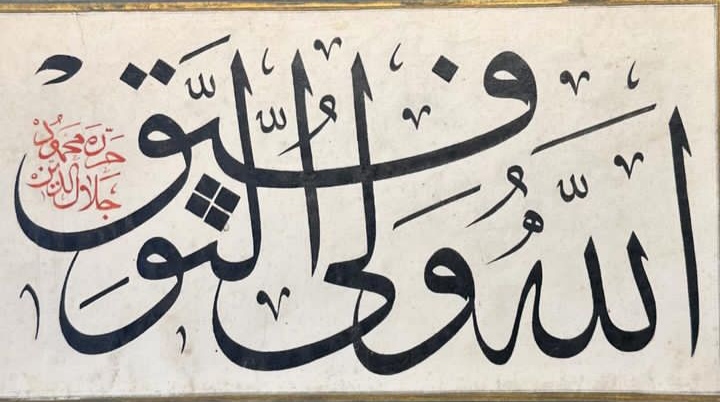 الله ولى التوفيق
حرره محمود
جلال الدين